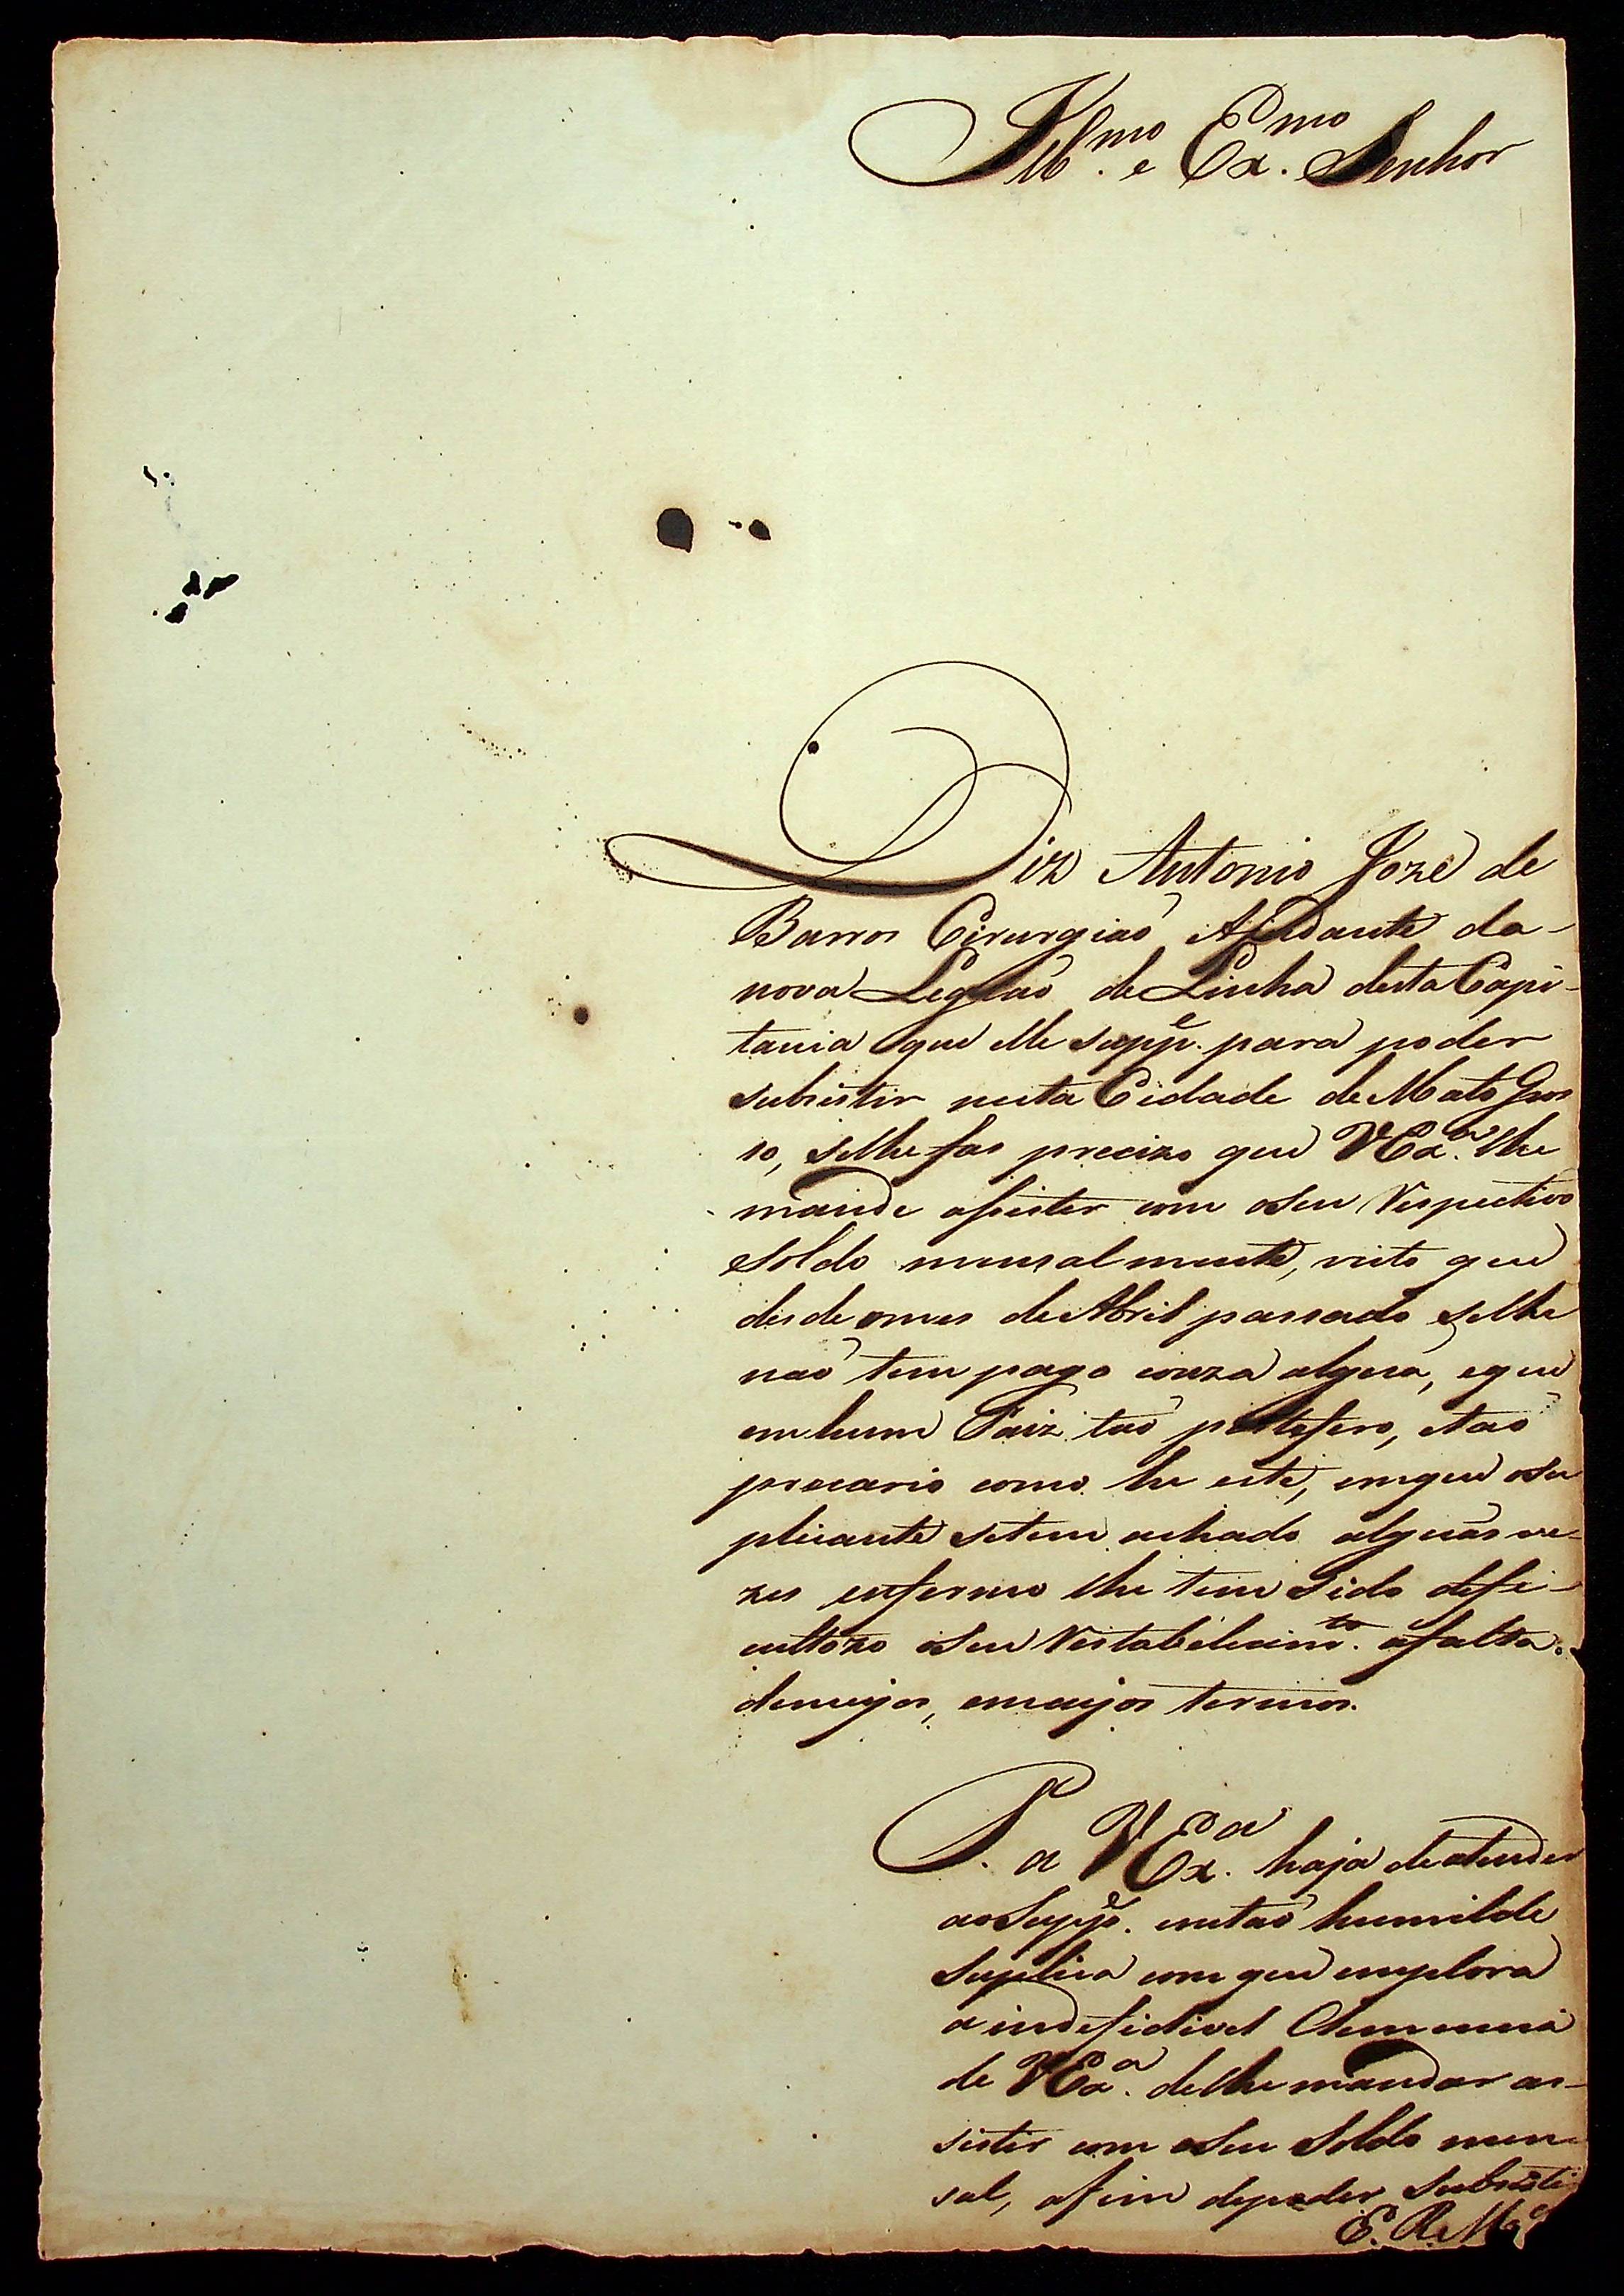 Ill.mo e Ex.mo Senhor
Diz Antonio Joze de
Barros Cirurgiaõ Ajudante da
nova Legiaõ de Linha desta Capi-
tania que elle supp.e para poder
subsistir nesta Cidade de Mato Gros
so, selhe fas precizo que VEx.a lhe
mande asistir com oseu Respectivo
Soldo mensalmente, visto que
desde omes de Abril passado selhe
naõ tem pago couza algũa, eque
em hum Paiz taõ pestefero, etaõ
precario como he este, emque osu
plicante setem achado algũas ve-
zes enfermo lhe tem sido defi-
cultozo oseu Restabelecim.to áfalta
demeyos, emcujos termos.
P. a VEx.a haja deatender
aoSupp.e nestaõ humilde
Suplica comque emplora
a indefetivel Clemencia
de VEx.a delhe mandar as-
sistir com oseu Soldo men-
sal, afim depoder Subsisti
E. R. M.ce